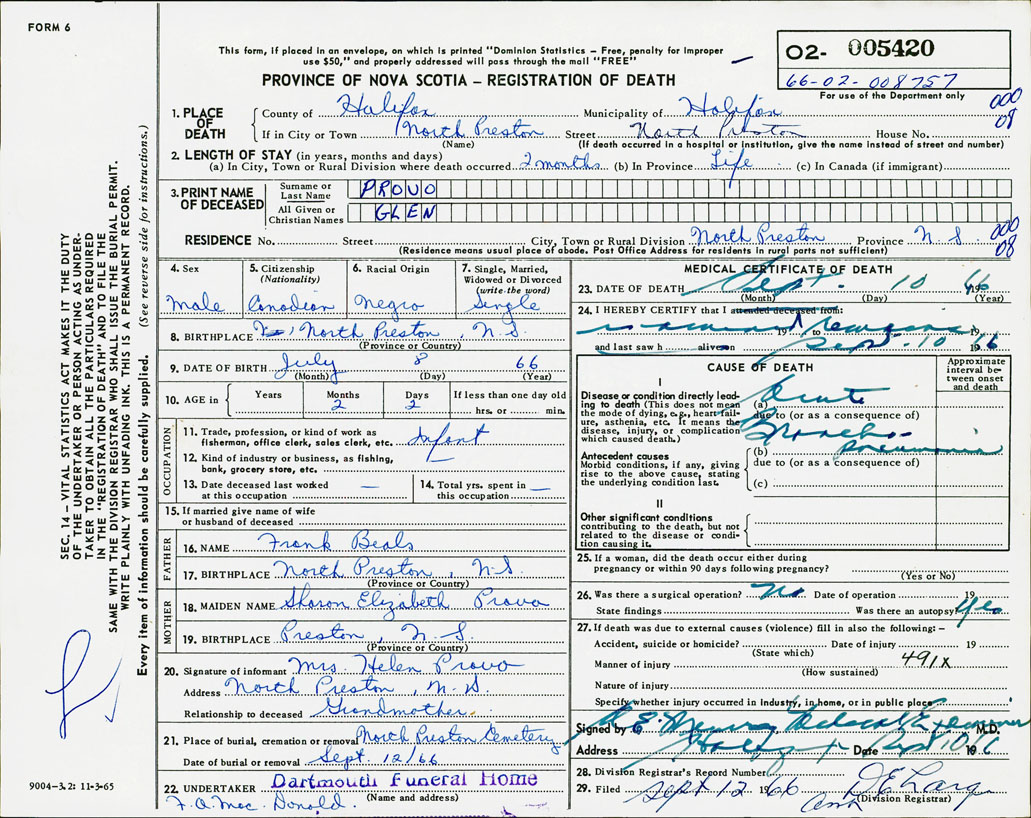 FORM 6
This form, if placed in an envelope, on which is printed "Dominion Statistics – Free, penalty for improper
use $50," and properly addressed will pass through the mail "FREE"
PROVINCE OF NOVA SCOTIA – REGISTRATION OF DEATH
O2- 005420
66-02-008757
For use of the Department only
000
08
1. PLACE OF DEATH
County of Halifax Municipality of Halifax
If in City or Town North Preston Street North Preston House No.
(Name) (If death occurred in a hospital or institution, give the name instead of street and number)
2. LENGTH OF STAY (in years, months and days)
(a) In City, Town or Rural Division where death occurred 2 months (b) In Province Life (c) In Canada (if immigrant)
3. PRINT NAME OF DECEASED
Surname or Last Name PROVO
All Given or Christian Names GLEN
RESIDENCE No. Street City, Town or Rural Division North Preston Province N.S
(Residence means usual place of abode. Post Office Address for residents in rural parts not sufficient)
000
08
4. Sex
Male
5. Citizenship (Nationality)
Canadian
6. Racial Origin
Negro
7. Single, Married, Widowed or Divorced (write the word)
Single
8. BIRTHPLACE North Preston, N.S.
(Province or Country)
9. DATE OF BIRTH July 8 66
(Month) (Day) (Year)
10. AGE in
Years Months Days If less than one day old
2 2 hrs. or min.
OCCUPATION
11. Trade, profession, or kind of work as
fisherman, office clerk, sales clerk, etc. Infant
12. Kind of industry or business, as fishing,
bank, grocery store, etc. —
13. Date deceased last worked
at this occupation —
14. Total yrs. spent in
this occupation —
15. If married give name of wife
or husband of deceased
FATHER
16. NAME Frank Beals
17. BIRTHPLACE North Preston, N.S.
(Province or Country)
MOTHER
18. MAIDEN NAME Sharon Elizabeth Provo
19. BIRTHPLACE Preston, N.S.
(Province or Country)
20. Signature of informant Mrs. Helen Provo
Address North Preston, N.S.
Relationship to deceased Grandmother.
21. Place of burial, cremation or removal North Preston Cemetery
Date of burial or removal Sept. 12/66
22. UNDERTAKER Dartmouth Funeral Home
(Name and address)
F.A. Mac Donald.
MEDICAL CERTIFICATE OF DEATH
23. DATE OF DEATH Sept. 10 1966
(Month) (Day) (Year)
24. I HEREBY CERTIFY that I attended deceased from:
19 to 19
and last saw h alive on Sept. 10 1966
CAUSE OF DEATH
Approximate interval between onset and death
I
Disease or condition directly leading to death (This does not mean
the mode of dying, e.g., heart failure, asthenia, etc. It means the
disease, injury, or complication
which caused death.)
(a) Acute
due to (or as a consequence of)
Broncho-
(b) pneumonia
due to (or as a consequence of)
(c)
Antecedent causes
Morbid conditions, if any, giving
rise to the above cause, stating
the underlying condition last.
II
Other significant conditions
contributing to the death, but not
related to the disease or condition causing it.
25. If a woman, did the death occur either during
pregnancy or within 90 days following pregnancy?
(Yes or No)
26. Was there a surgical operation? No Date of operation 19
State findings Was there an autopsy? Yes
27. If death was due to external causes (violence) fill in also the following: –
Accident, suicide or homicide? Date of injury 19
(State which)
Manner of injury 491X
(How sustained)
Nature of injury
Specify whether injury occurred in industry, in home, or in public place
Signed by Medical Examiner M.D.
Address Halifax Date Sept 10 1966
28. Division Registrar's Record Number
29. Filed Sept 12 1966
(Division Registrar)
SEC. 14 – VITAL STATISTICS ACT MAKES IT THE DUTY
OF THE UNDERTAKER OR PERSON ACTING AS UNDER-
TAKER TO OBTAIN ALL THE PARTICULARS REQUIRED
IN THE "REGISTRATION OF DEATH" AND TO FILE THE
SAME WITH THE DIVISION REGISTRAR WHO SHALL ISSUE THE BURIAL PERMIT.
WRITE PLAINLY WITH UNFADING INK. THIS IS A PERMANENT RECORD.
Every item of information should be carefully supplied. (See reverse side for instructions.)
9004–3.2: 11-3-65